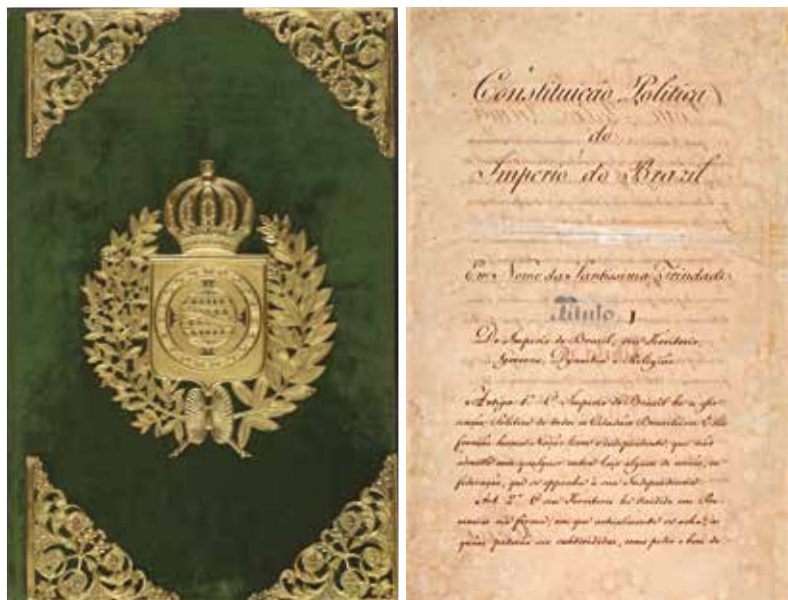 Constituição Politica
do
Imperio do Brazil
Em Nome da Santissima Trindade
Titulo 1
Do Imperio do Brazil, seu Territorio,
Governo, Dynastia e Religião
Artigo 1º O Imperio do Brazil he a asso
ciação Politica de todos os Cidadãos Brazileiros. Elles
formão huma Nação livre e independente, que não
admitte com qualquer outra laço algum de união, ou
federação, que se opponha à sua Independencia.
Art. 2º O seu Territorio he dividido em Pro
vincias na fórma, em que actualmente se acha, as
quáes poderão ser subdivididas, como pedir o bem do